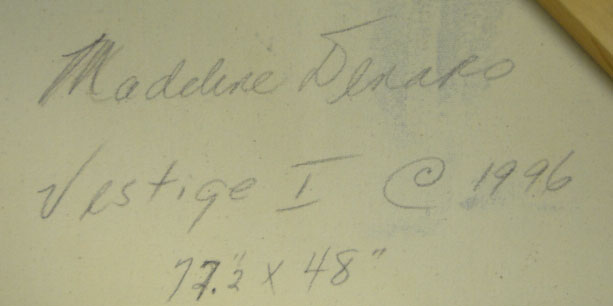 Madeline Denaro
Vestige I © 1996
72" x 48"